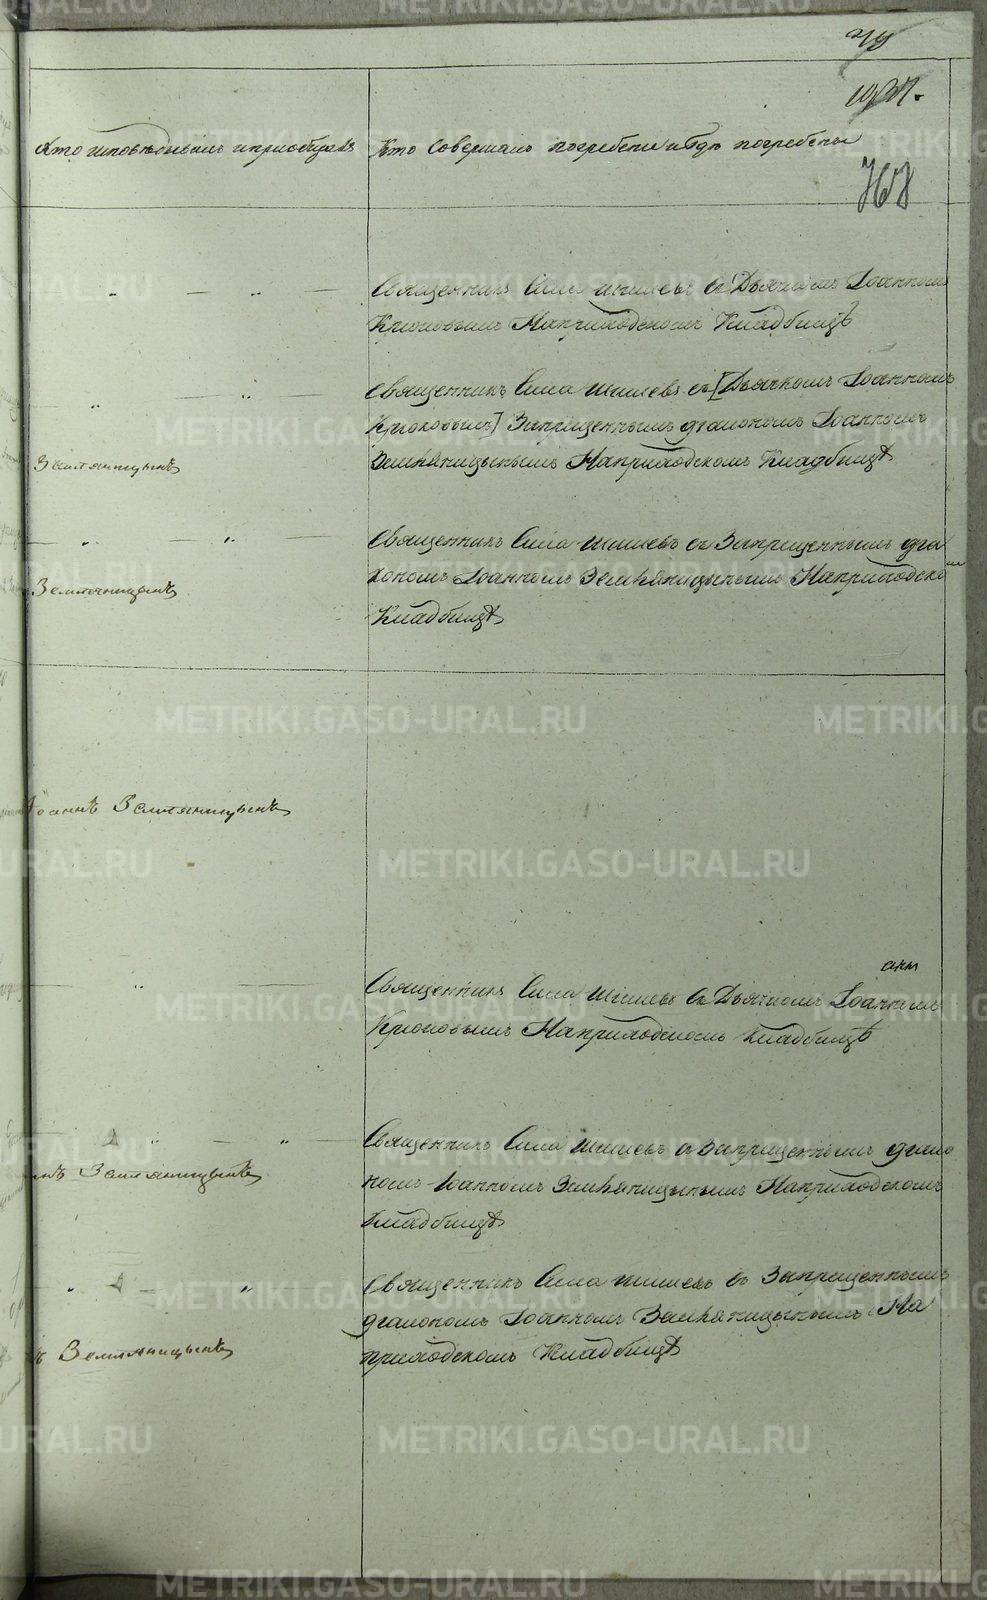 Кто исповѣдывалъ и приобщалъ
Кто совершалъ погребение и гдѣ погребены
768
Священникъ Сила Шишевъ съ Дьячкомъ Іоанномъ
Крюковымъ На приходскомъ Кладбищѣ
Священникъ Сила Шишевъ съ [Дьячкомъ Іоанномъ
Крюковымъ] Запрещеннымъ діакономъ Іоанномъ
Земляницынымъ На приходскомъ Кладбищѣ
Земляницынъ
Священникъ Сила Шишевъ съ Запрещеннымъ діа
кономъ Іоанномъ Земляницынымъ На приходскомъ
Кладбищѣ
Земляницынъ
Іоаннъ Земляницынъ
Священникъ Сила Шишевъ съ Дьячкомъ Іоанномъ
Крюковымъ На приходскомъ Кладбищѣ
Священникъ Сила Шишевъ съ Запрещеннымъ діако
номъ Іоанномъ Земляницынымъ На приходскомъ
Кладбищѣ
нъ Земляницынъ
Священникъ Сила Шишевъ съ Запрещеннымъ
діакономъ Іоанномъ Земляницынымъ На
приходскомъ Кладбищѣ
ъ Земляницынъ
METRIKI.GASO-URAL.RU